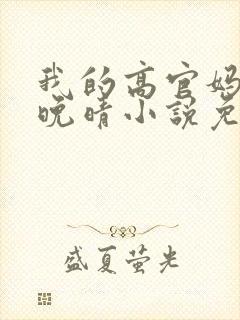 我的高官妈
晚晴小说免
盛夏萤光